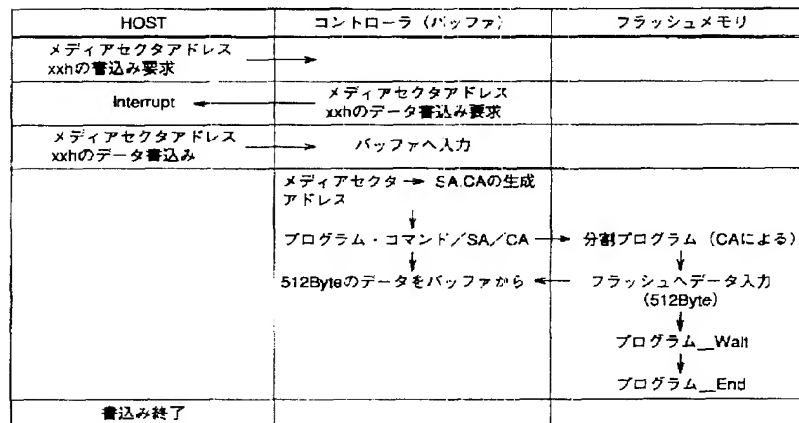 HOST コントローラ（バッファ） フラッシュメモリ
メディアセクタアドレス
xxhの書込み要求
Interrupt メディアセクタアドレス
xxhのデータ書込み要求
メディアセクタアドレス
xxhのデータ書込み バッファへ入力
メディアセクタ → SA.CAの生成
アドレス
プログラム・コマンド／SA／CA 分割プログラム（CAによる）
512Byteのデータをバッファから フラッシュへデータ入力
（512Byte）
プログラム__Wait
プログラム__End
書込み終了